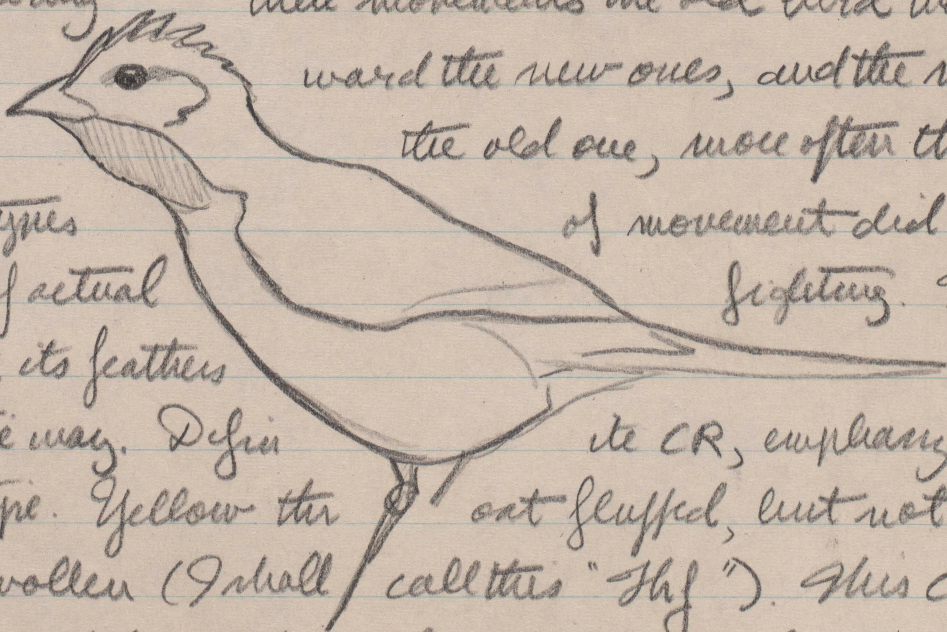 new movements the old bird
ward the new ones, and the
the old one, more often th
ypes of movement did
f actual fighting.
its feathers
way. Defin ite CR, emphasi
pe. Yellow thr oat fluffed, but not
wollen (I shall call this "Thf"). This